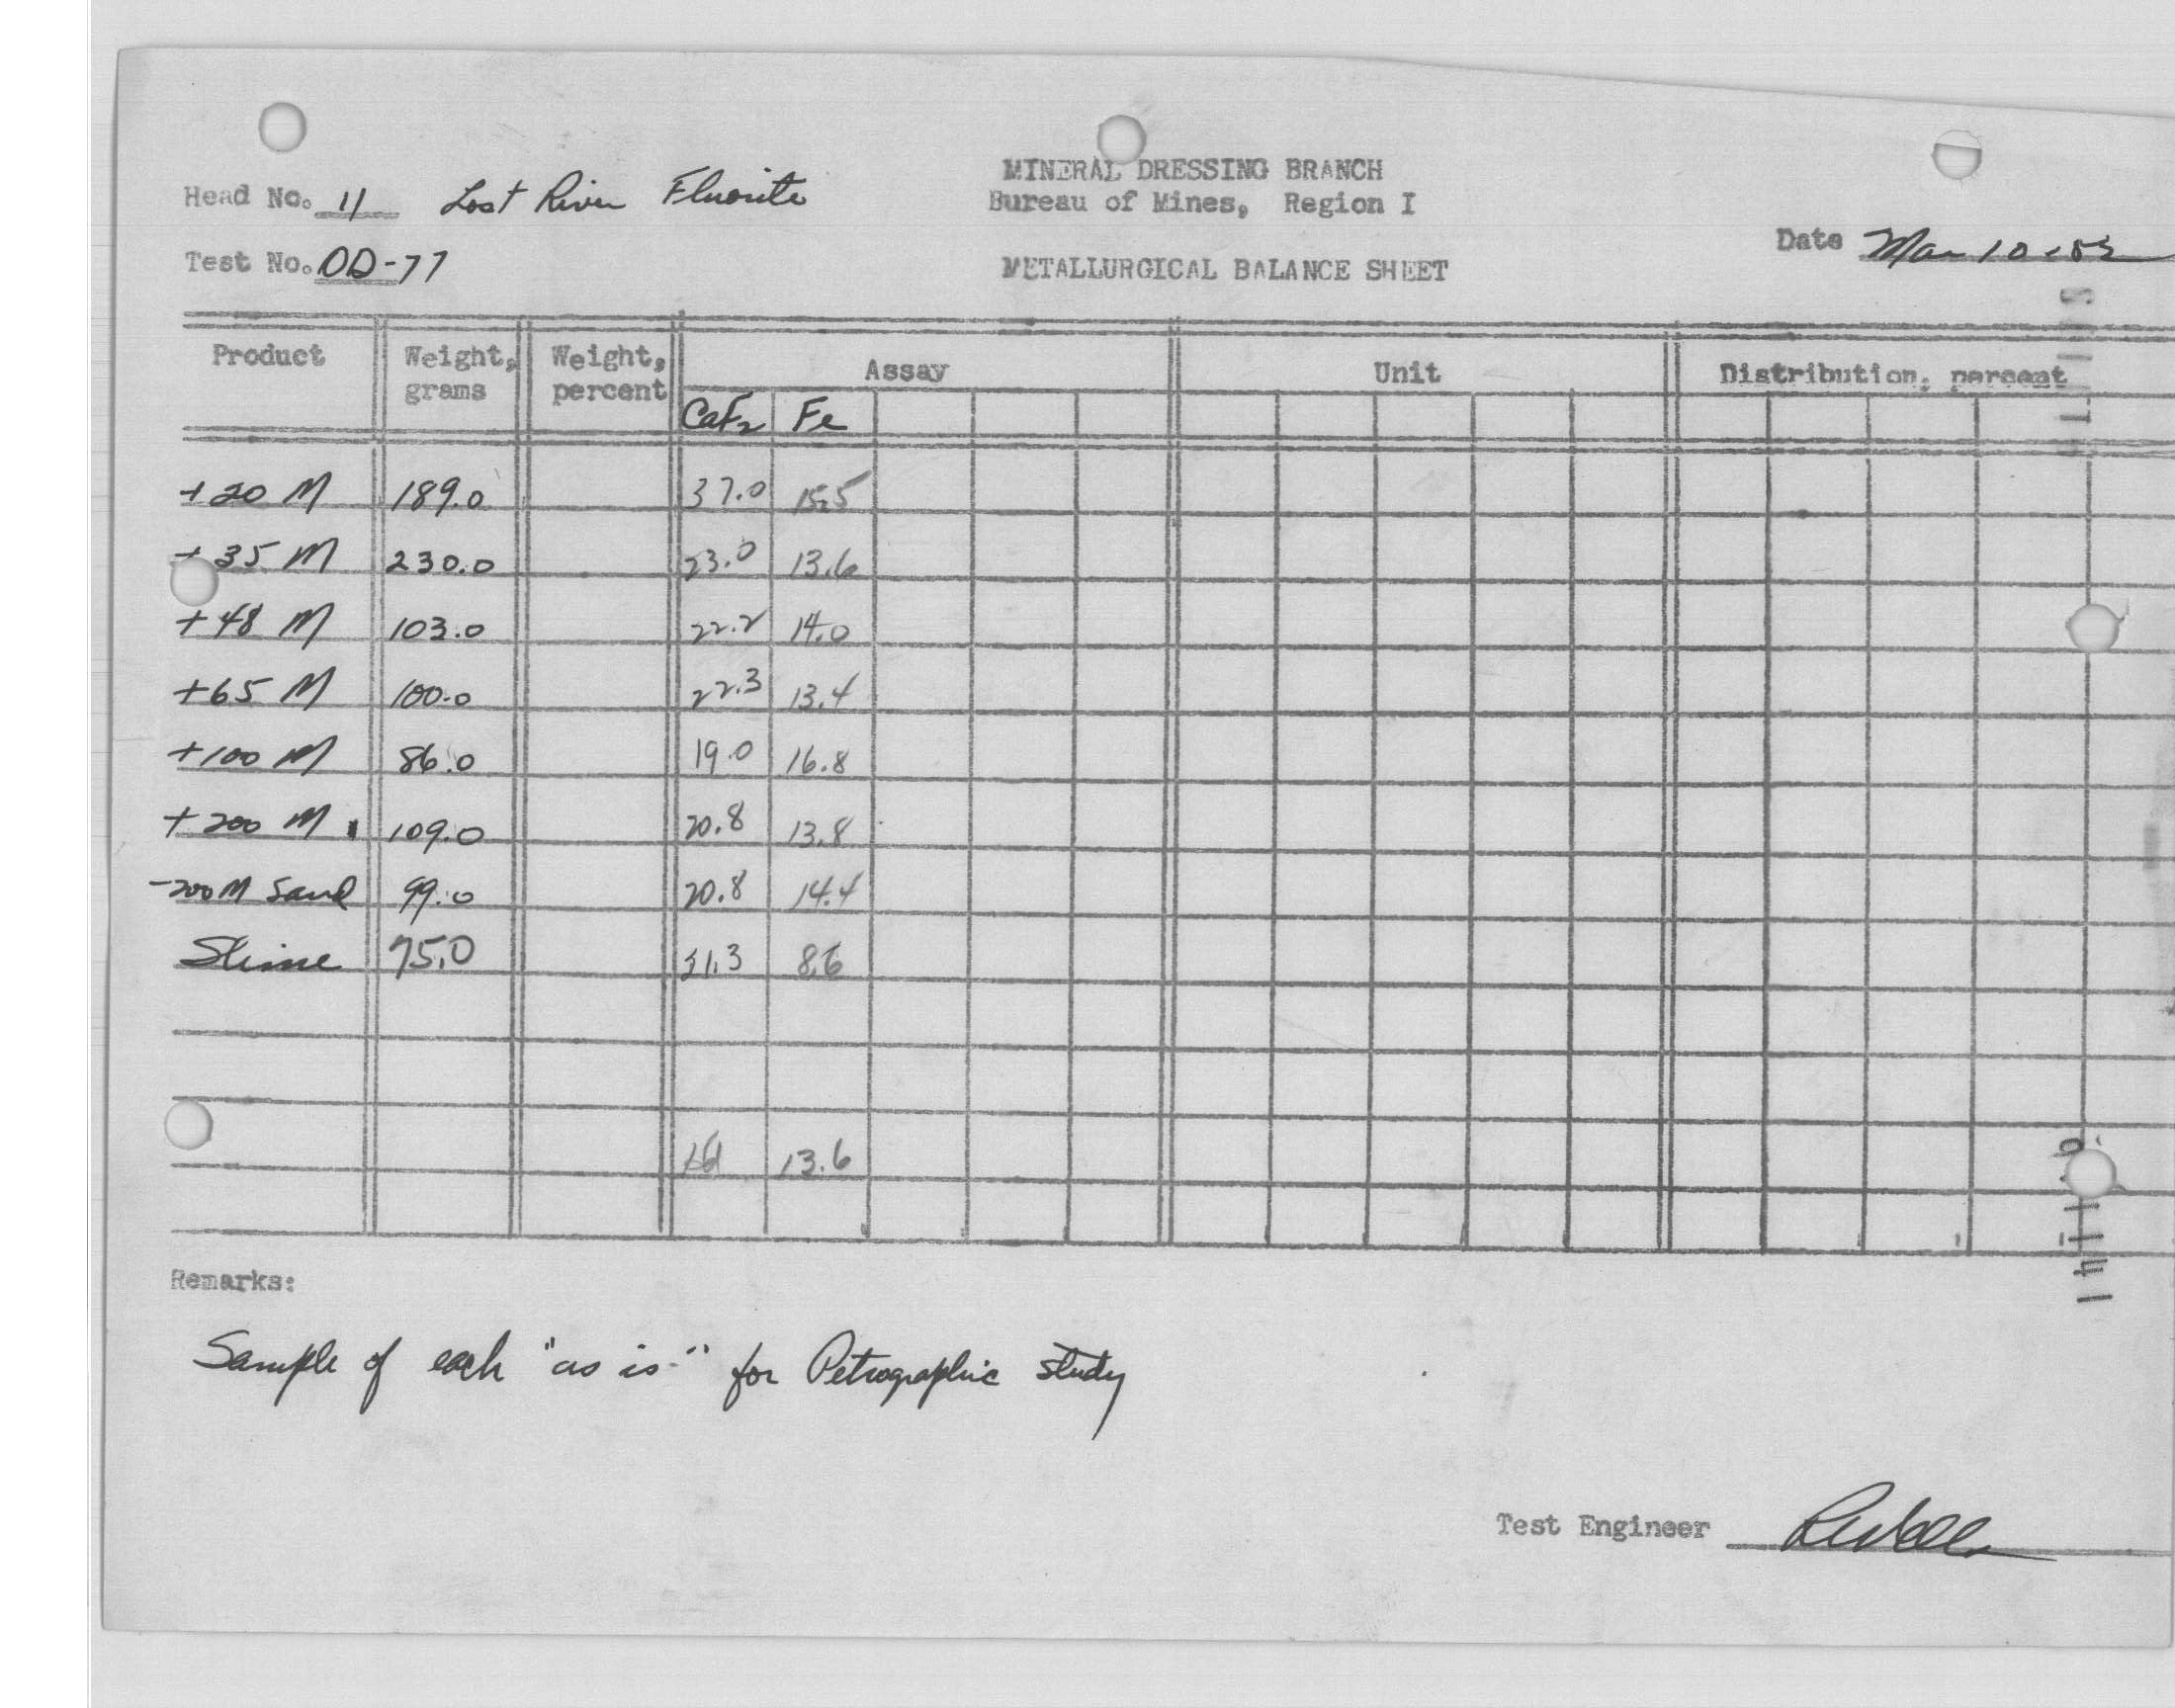 MINERAL DRESSING BRANCH
Head No. 11 Lost River Fluorite
Bureau of Mines, Region I
Date Mar 10-52
Test No. OD-77
METALLURGICAL BALANCE SHEET
Product Weight, grams Weight, percent Assay Unit Distribution, percent
CaF2 Fe
+20 M 189.0 37.0 15.5
+35 M 230.0 23.0 13.6
+48 M 103.0 22.2 14.0
+65 M 100.0 22.3 13.4
+100 M 86.0 19.0 16.8
+200 M 109.0 20.8 13.8
-200 M Sand 99.0 20.8 14.4
Slime 75.0 31.3 8.6
13.6
Remarks:
Sample of each "as is" for Petrographic study
Test Engineer